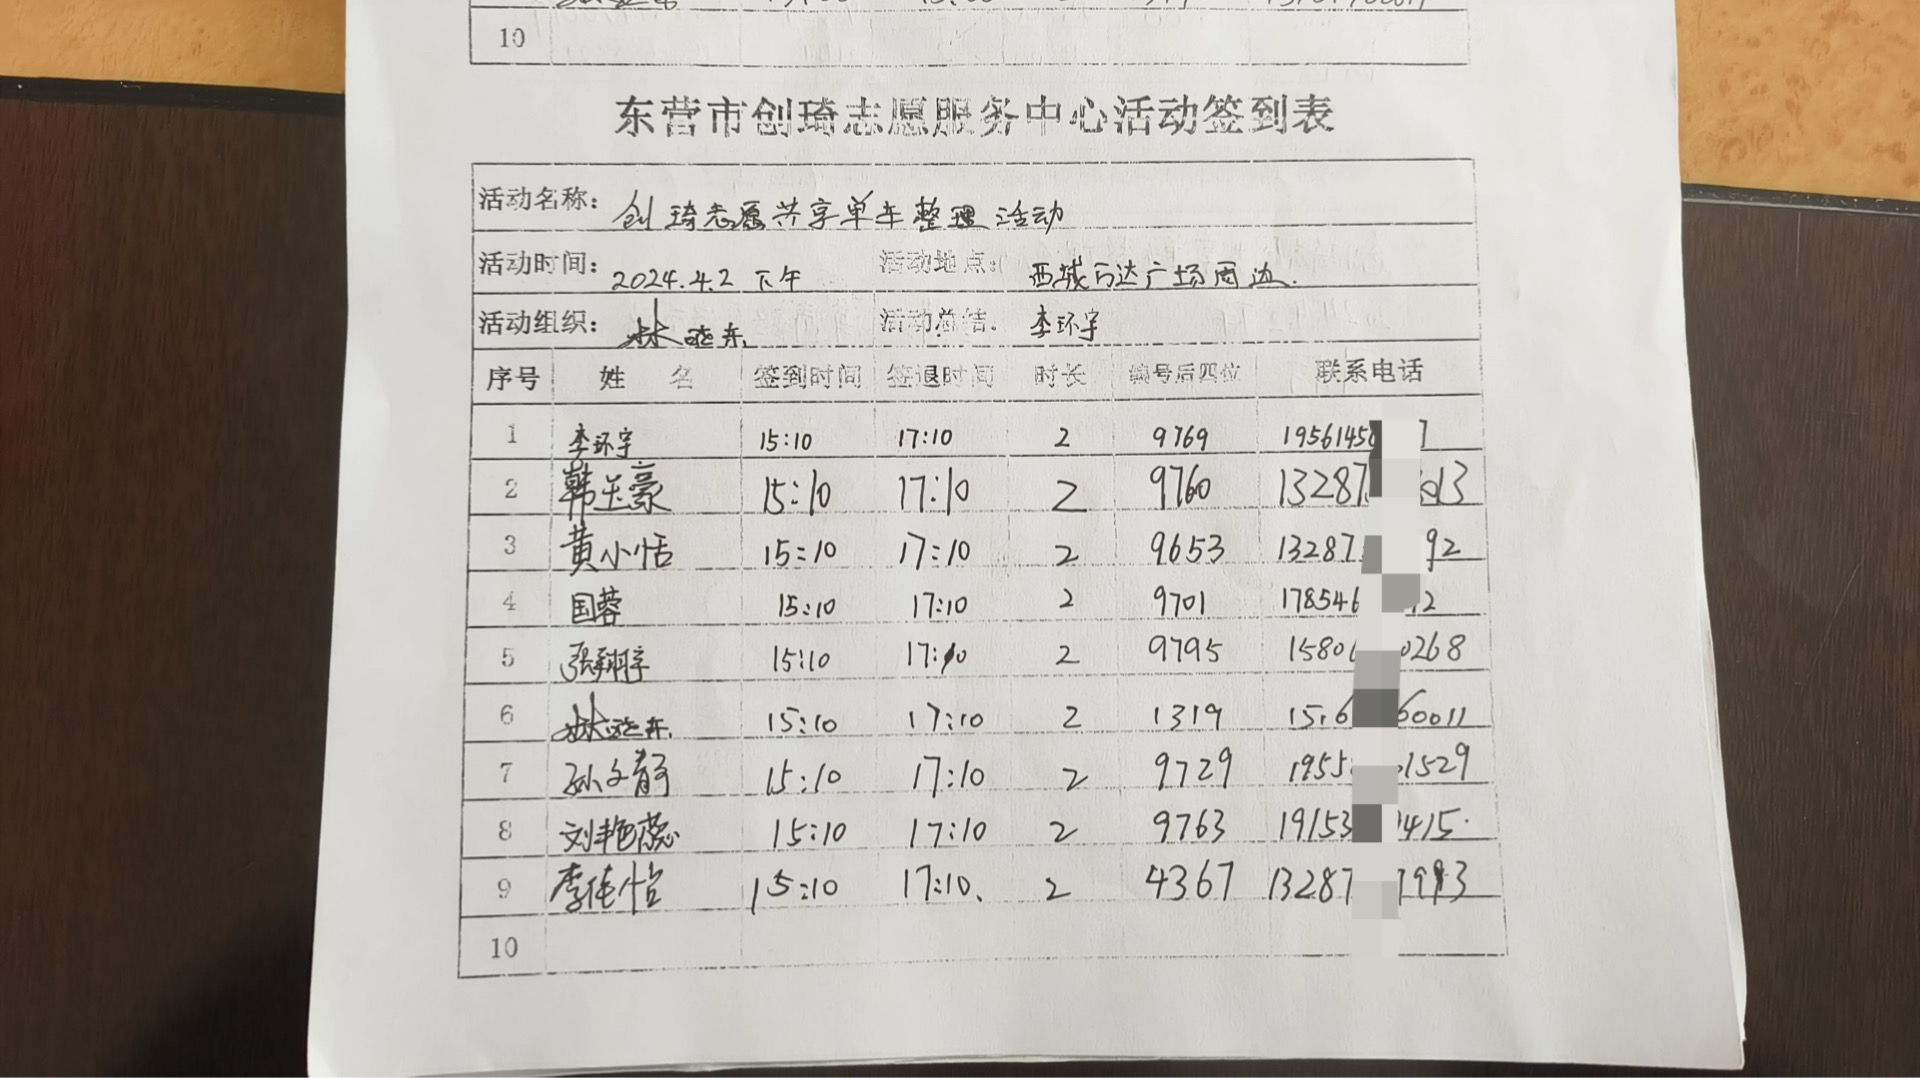 10
东营市创琦志愿服务中心活动签到表
活动名称： 创琦志愿共享单车整理活动
活动时间： 2024.4.2 下午 活动地点： 西城万达广场周边.
活动组织： 林晓东 活动总结. 李环宇
序号 姓 名 签到时间 签退时间 时长 编号后四位 联系电话
1 李环宇 15:10 17:10 2 9769 1956145 7
2 韩玉豪 15:10 17:10 2 9760 13287 013
3 黄小恬 15:10 17:10 2 9653 13287 92
4 国蓉 15:10 17:10 2 9701 178546 12
5 张翔宇 15:10 17:10 2 9795 1580 0268
6 林晓东. 15:10 17:10 2 1319 60011
7 孙文静 15:10 17:10 2 9729 1955 1529
8 刘艳蕊 15:10 17:10 2 9763 19153 1415
9 李佳怡 15:10 17:10、 2 4367 13287 7993
10